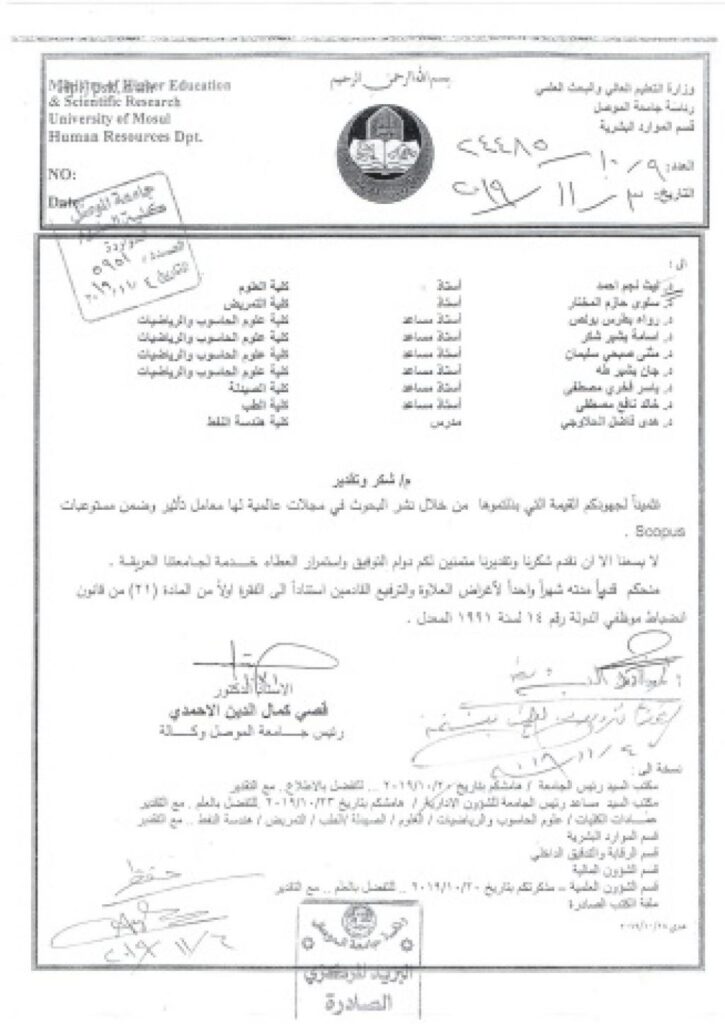 بسم الله الرحمن الرحيم
Ministry of Higher Education
& Scientific Research
University of Mosul
Human Resources Dpt.
NO:
Date:
وزارة التعليم العالي والبحث العلمي
رئاسة جامعة الموصل
قسم الموارد البشرية
العدد: ٩/١٠ / ٢٤٤٨٥
التاريخ: ٣ / ١١ / ٢٠١٩
جامعة الموصل
الواردة
العدد / ٥٩٥١
التاريخ ٤ / ١١ / ٢٠١٩
الى :
د. ليث نجم احمد أستاذ كلية العلوم
د. سلوى حازم المختار أستاذ كلية التمريض
د. رواء بطرس بولص أستاذ مساعد كلية علوم الحاسوب والرياضيات
د. اسامة بشير شكر أستاذ مساعد كلية علوم الحاسوب والرياضيات
د. مثنى صبحي سليمان أستاذ مساعد كلية علوم الحاسوب والرياضيات
د. جان بشير طه أستاذ مساعد كلية علوم الحاسوب والرياضيات
د. ياسر فخري مصطفى أستاذ مساعد كلية الصيدلة
د. خالد نافع مصطفى أستاذ مساعد كلية الطب
د. هدى فاضل الحلاوجي مدرس كلية هندسة النفط
م/ شكر وتقدير
تثميناً لجهودكم القيمة التي بذلتموها من خلال نشر البحوث في مجلات عالمية لها معامل تأثير وضمن مستوعبات
Scopus .
لا يسعنا الا ان نقدم شكرنا وتقديرنا متمنين لكم دوام التوفيق واستمرار العطاء خدمة لجامعتنا العريقة .
منحكم قدماً مدته شهراً واحداً لأغراض العلاوة والترفيع القادمين استناداً الى الفقرة اولاً من المادة (٢١) من قانون
انضباط موظفي الدولة رقم ١٤ لسنة ١٩٩١ المعدل .
الاستاذ الدكتور
قصي كمال الدين الاحمدي
رئيس جـــامعة الموصل وكـــالة
٤ / ١١ / ٢٠١٩
نسخة الى :
مكتب السيد رئيس الجامعة / هامشكم بتاريخ ٢٠١٩/١٠/٢٠ .. للتفضل بالاطلاع .. مع التقدير
مكتب السيد مساعد رئيس الجامعة للشؤون الادارية / هامشكم بتاريخ ٢٠١٩/١٠/٢٣ للتفضل بالعلم . مع التقدير
عمادات الكليات / علوم الحاسوب والرياضيات / العلوم / الصيدلة /الطب / التمريض / هندسة النفط .. مع التقدير
قسم الموارد البشرية
قسم الرقابة والتدقيق الداخلي
قسم الشؤون المالية
قسم الشؤون العلمية – مذكرتكم بتاريخ ٢٠١٩/١٠/٢٠ .. للتفضل بالعلم .. مع التقدير
ملفة الكتب الصادرة
هدى ٢٠١٩/١٠/٢٨
حفظ
رئاسة جامعة الموصل
البريد المركزي
الصادرة